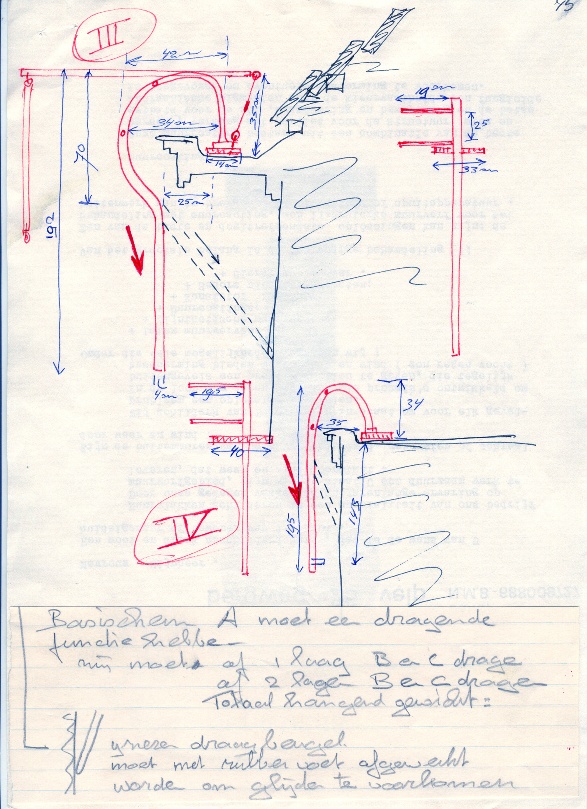 45
III
42 cm
39 cm
35 cm
14 cm
25 cm
70
192
4 cm
19 cm
25
33 cm
195
40
IV
34
35
195
145
Basischem A moet een dragende
functie hebbe
moet of 1 laag B en C drage
of 2 lagen B en C dragen
Totaal hangend gewicht =
yzeren draagbeugel
moet met rubber voet afgewerkt
worden om glijden te voorkomen